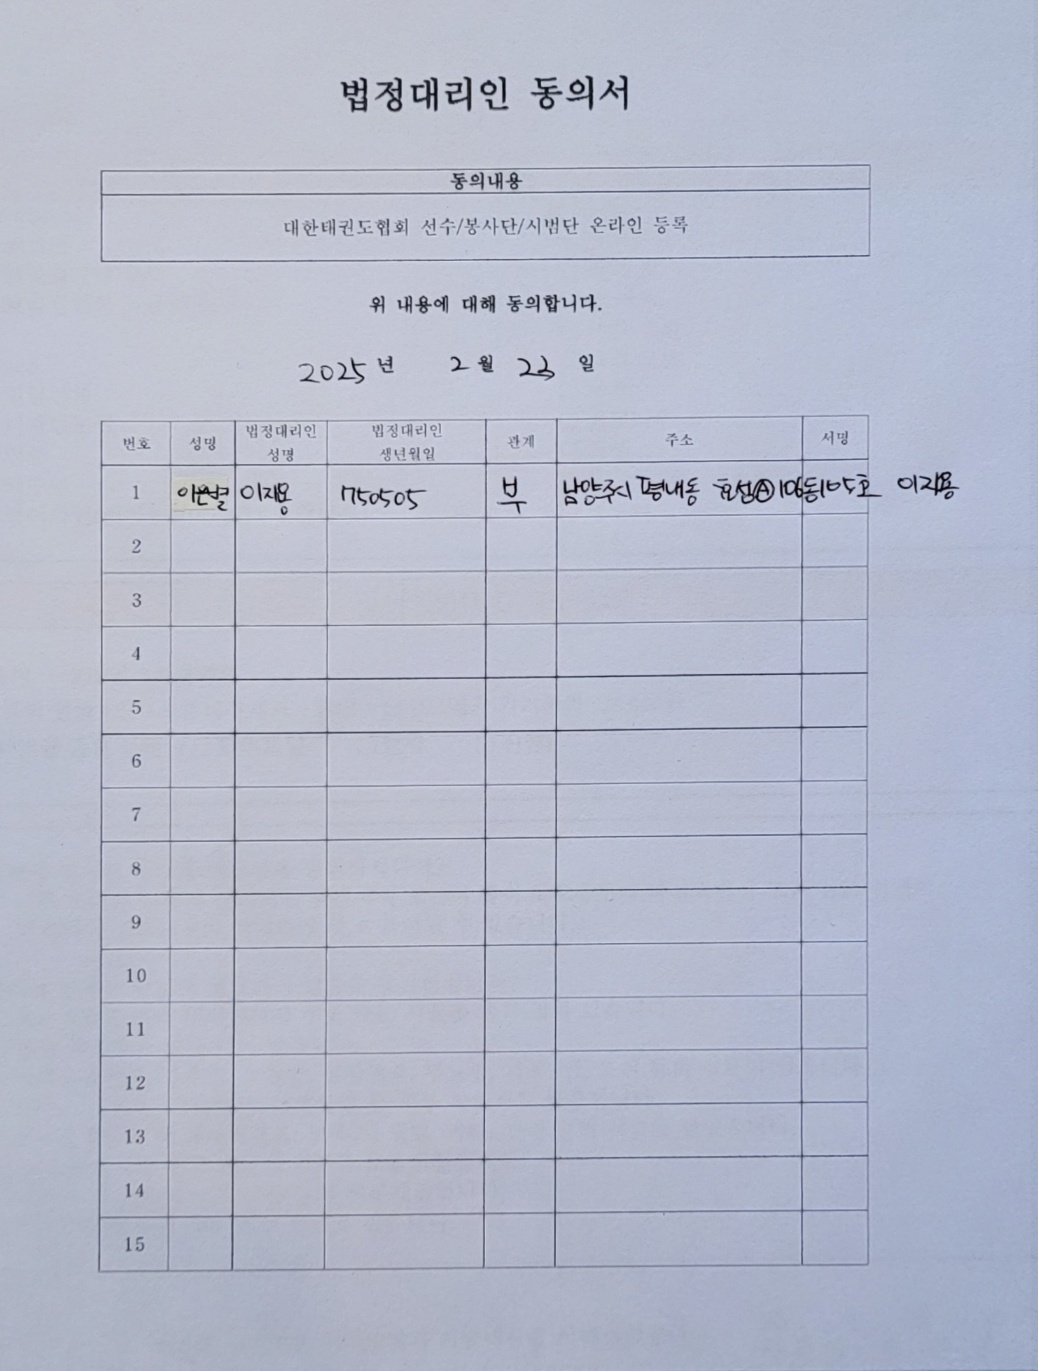 법정대리인 동의서
동의내용
대한태권도협회 선수/봉사단/시범단 온라인 등록
위 내용에 대해 동의합니다.
2025년 2월 23일
번호 성명 법정대리인 성명 법정대리인 생년월일 관계 주소 서명
1 이은별 이재용 750505 부 남양주시 평내동 효성Ⓐ106동1105호 이재용
2
3
4
5
6
7
8
9
10
11
12
13
14
15